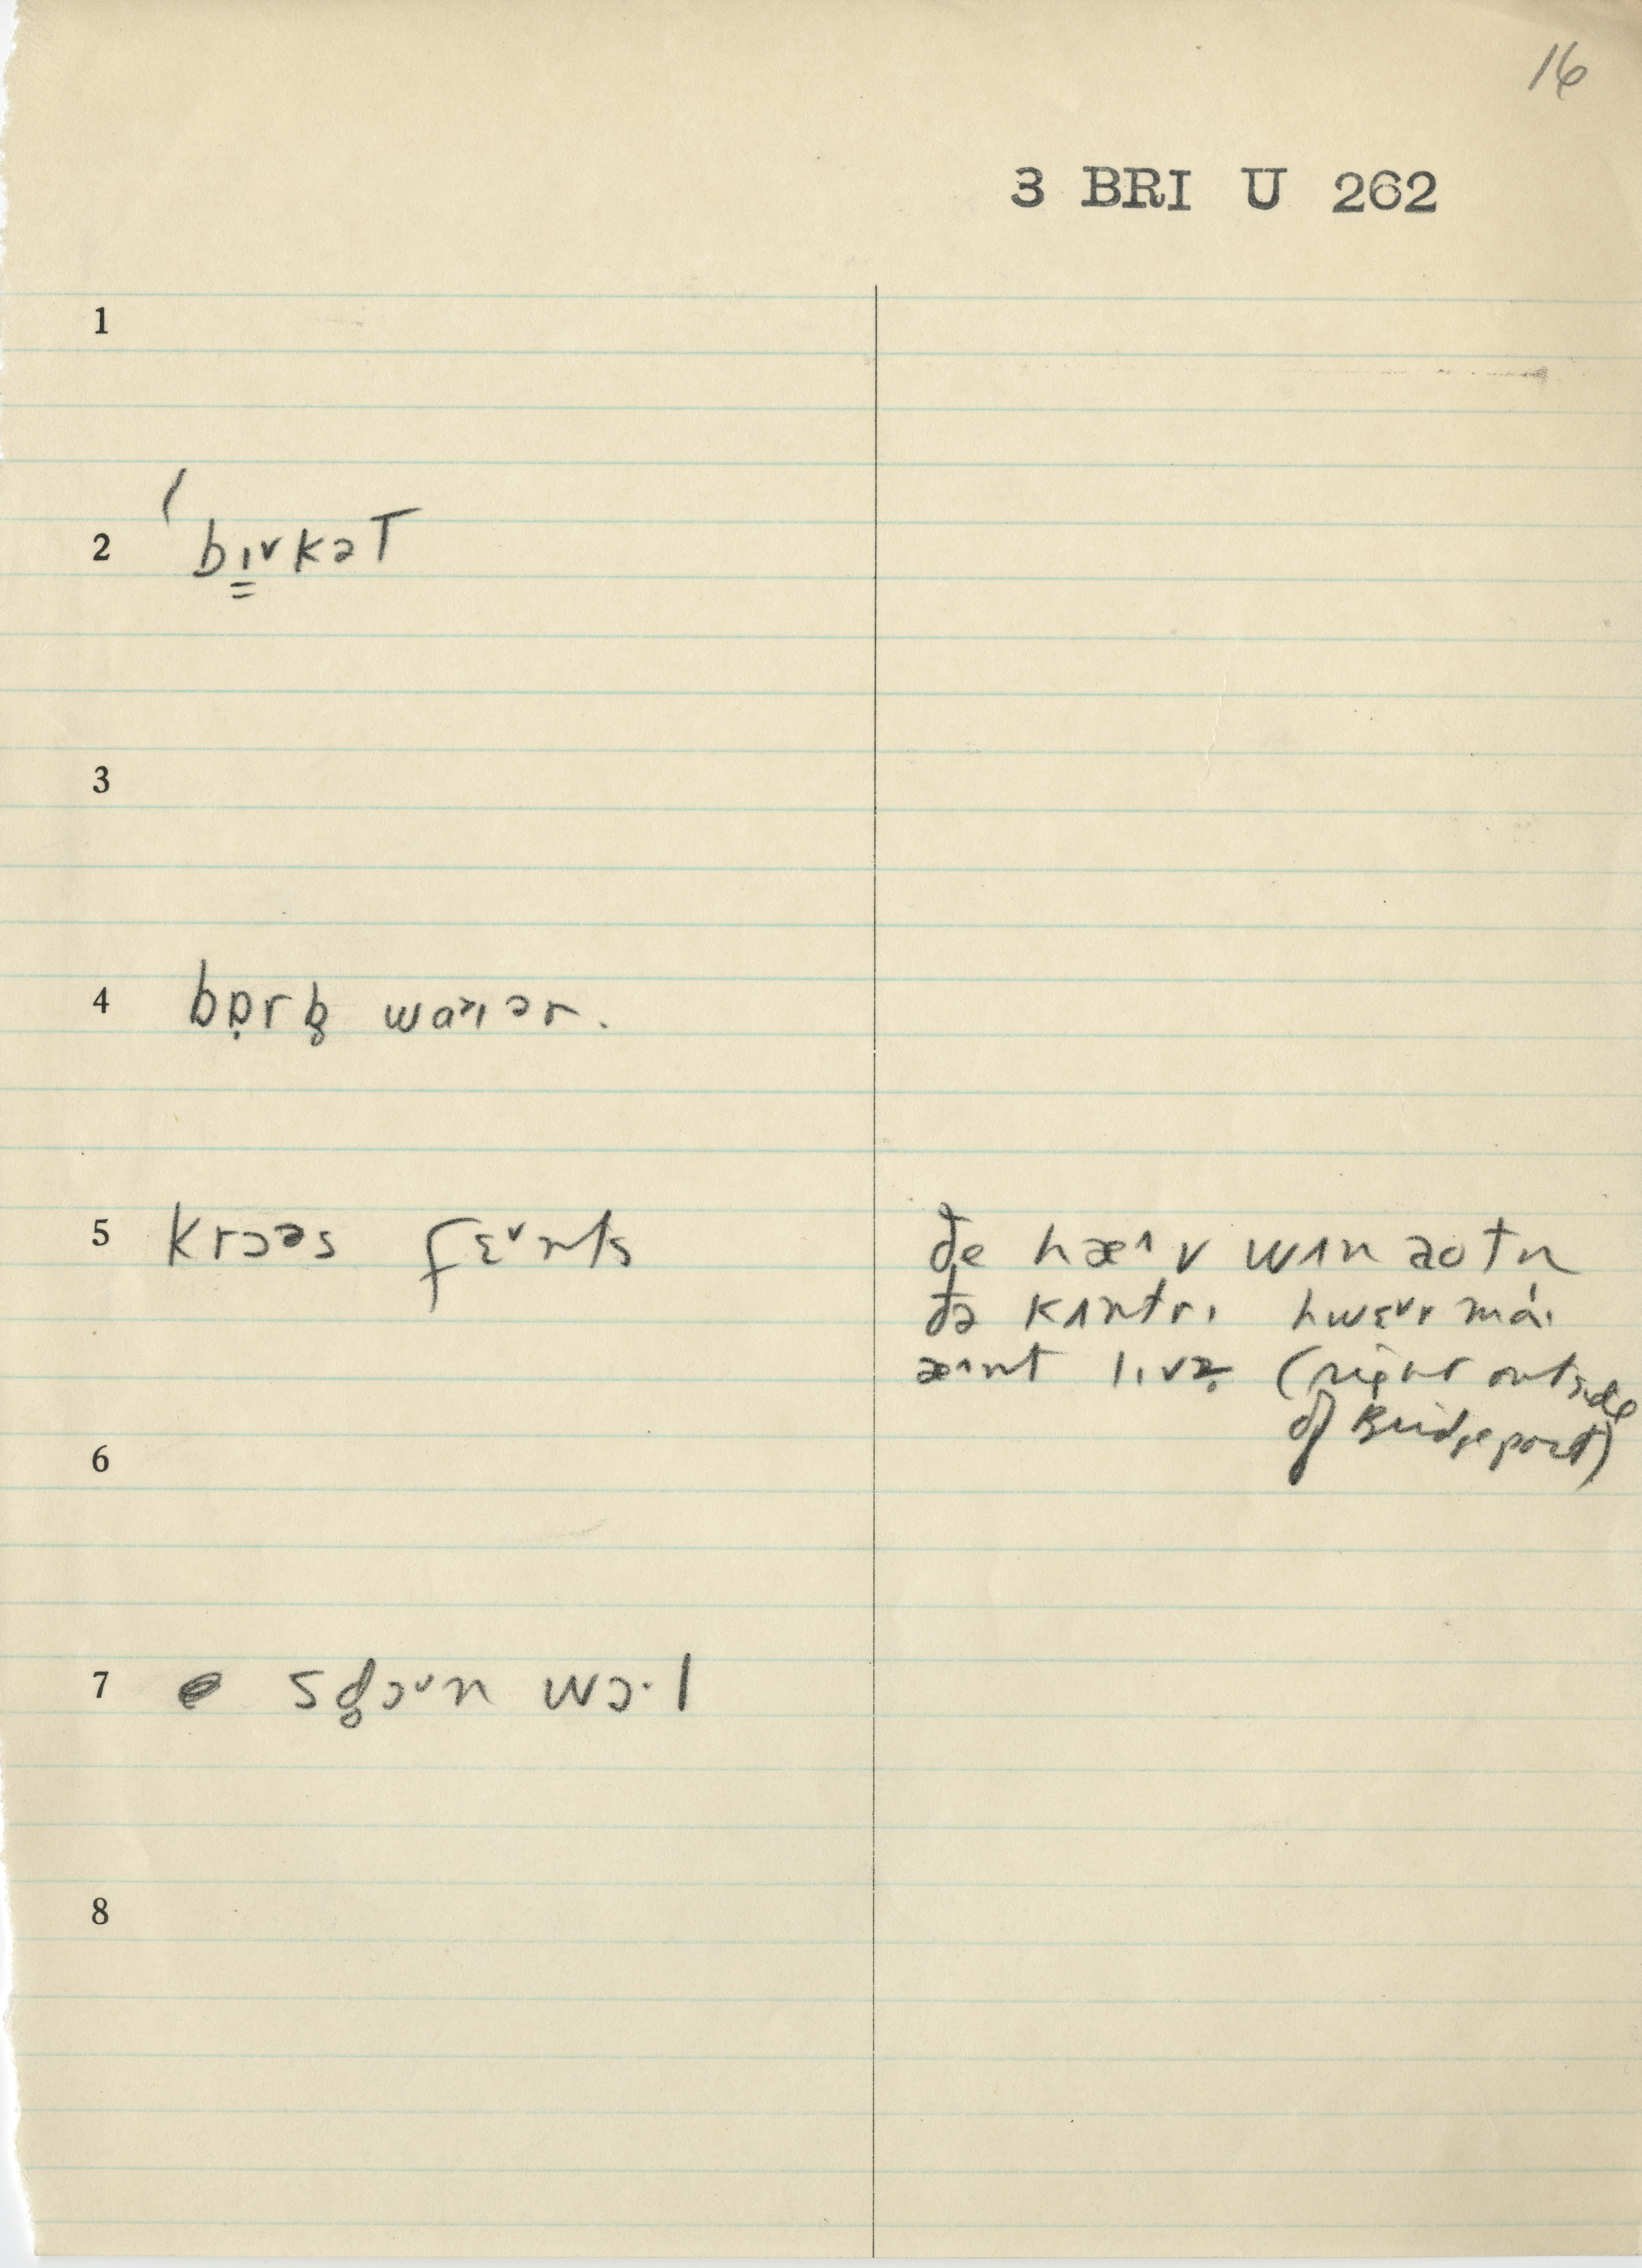 16
3 BRI U 262
1
2 ′bɪ̳˅kəT
3
4 bɒ̣rb̥ waɪər.
5 krɔəs fɛ˅nts
ðe hæ^v wʌn aotn
ðə kʌntrɪ hwɛ˅r mái
æ^nt lɪvz̥ (right outside
of Bridgeport)
6
7 sd̥ɔ˅n wɔ·l
8